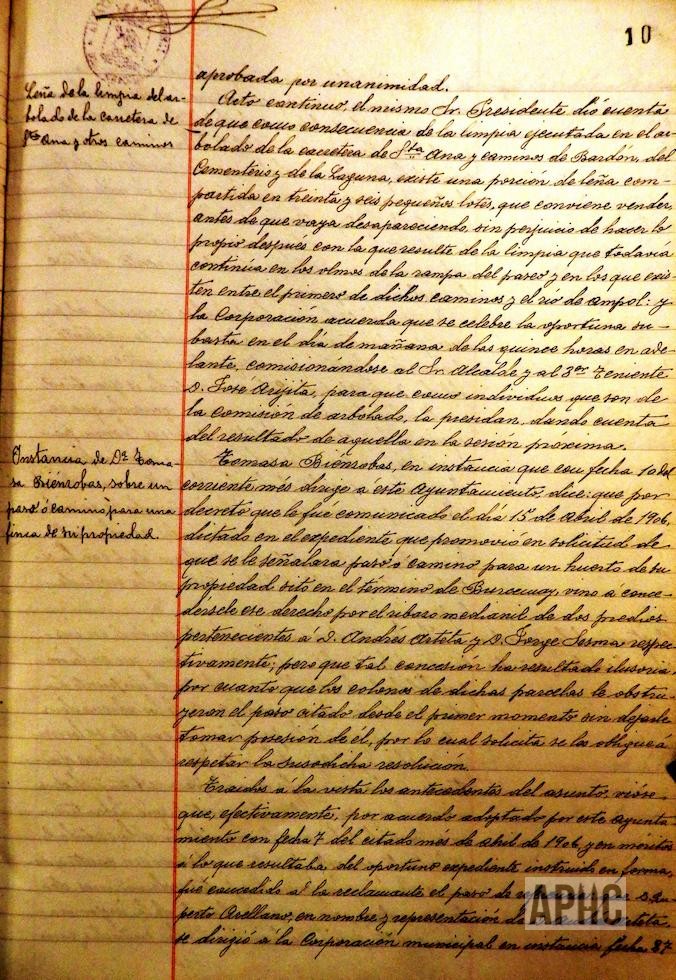 10
Leña de la limpia del ar-
bolado de la carretera de
Sta Ana y otros caminos
aprobada por unanimidad.
Acto continuo, el mismo Sr. Presidente dió cuenta
de que como consecuencia de la limpia ejecutada en el ar-
bolado de la carretera de Sta Ana y caminos de Bardón, del
Cementerio y de la Laguna, existe una porción de leña com-
partida en treinta y seis pequeños lotes, que conviene vender
antes de que vaya desapareciendo, sin perjuicio de hacer lo
propio después con la que resulte de la limpia que todavía
continúa en los olmos de la rampa del paseo y en los que exis-
ten entre el primero de dichos caminos y el río de ampol: y
la Corporación acuerda que se celebre la oportuna su-
basta en el día de mañana de las quince horas en ade-
lante, comisionándose al Sr. Alcalde y al 3er Teniente
D. Jose Arijita, para que como individuos que son de
la Comisión de arbolado, la presidan, dando cuenta
del resultado de aquella en la sesion proxima.
Instancia de Da Toma-
sa Biénzobas, sobre un
paso ó camino para una
finca de su propiedad.
Tomasa Biénzobas, en instancia que con fecha 10 del
corriente més dirige á éste Ayuntamiento, dice: que por
decreto que le fue comunicado el día 15 de Abril de 1906,
dictado en el expediente que promovió en solicitud de
que se le señalara paso ó camino para un huerto de su
propiedad sito en el término de Burceuay, vino á conce-
dersele ese derecho por el ribazo medianil de dos predios
pertenecientes á D. Andrés Arteta y D. Jorge Sesma respec-
tivamente; pero que tal concesión ha resultado ilusoria,
por cuanto que los colonos de dichas parcelas le obstru-
yeron el paso citado desde el primer momento sin dejarle
tomar posesión de él, por lo cual solicita se les obligue á
respetar la susodicha resolución.
Traidos á la vista los antecedentes del asunto, vióse
que, efectivamente, por acuerdo adoptado por este Ayunta-
miento con fecha 7 del citado més de abril de 1906, y en méritos
á lo que resultaba del oportuno expediente instruido en forma,
fué concedido á la reclamante el paso de D. Ru-
perto Arellano, en nombre y representación de Arteta,
se dirigió á la Corporación municipal en instancia fecha 27
APHC